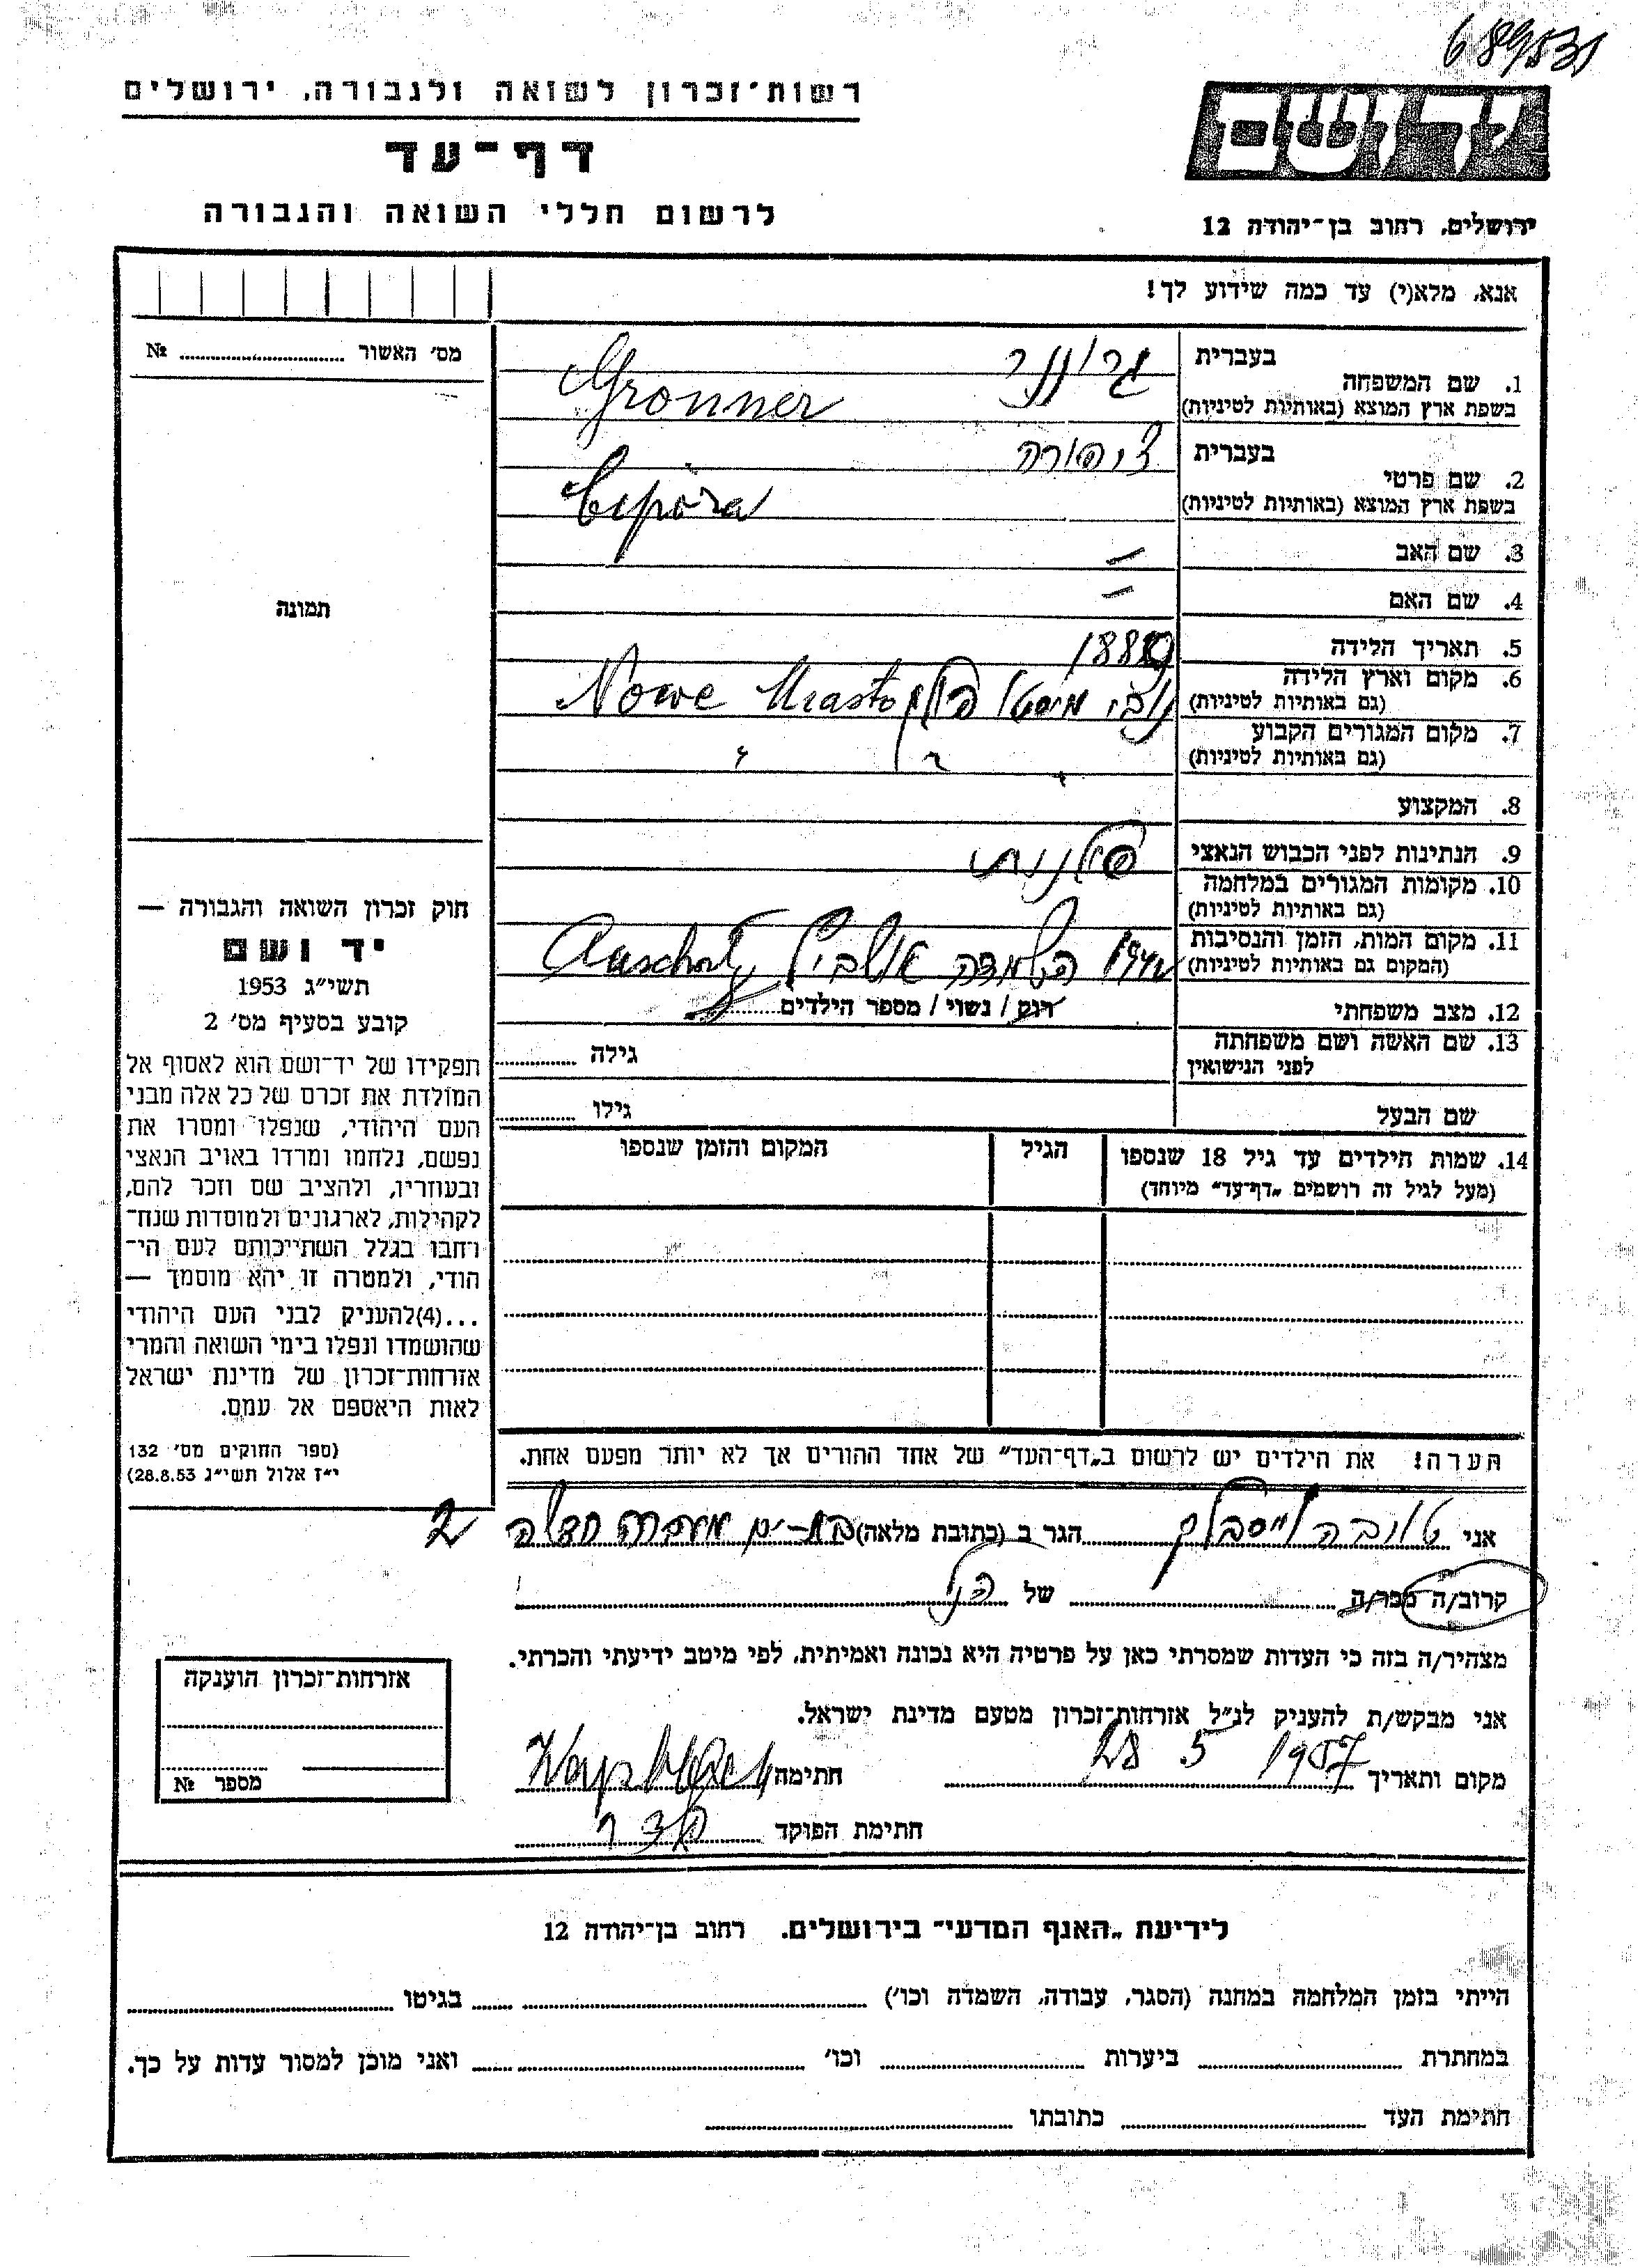 רשות־זכרון לשואה ולגבורה, ירושלים
דף־עד
לרשום חללי השואה והגבורה
ידושם
ירושלים, רחוב בן־יהודה 12
אנא, מלא(י) עד כמה שידוע לך!
מס׳ האשור № ........
תמונה
1. שם המשפחה
בעברית גרונר
בשפת ארץ המוצא (באותיות לטיניות) Gronner
2. שם פרטי
בעברית ציפורה
בשפת ארץ המוצא (באותיות לטיניות) Cipora
3. שם האב –
4. שם האם –
5. תאריך הלידה
6. מקום וארץ הלידה
(גם באותיות לטיניות) נובי מיסטו פולין Nowe Miasto
7. מקום המגורים הקבוע
(גם באותיות לטיניות) " " "
8. המקצוע
9. הנתינות לפני הכבוש הנאצי פולנית
10. מקומות המגורים במלחמה
(גם באותיות לטיניות)
11. מקום המות, הזמן והנסיבות
(המקום גם באותיות לטיניות) 1942 השמדה
12. מצב משפחתי רווק / נשוי / מספר הילדים........
13. שם האשה ושם משפחתה
לפני הנישואין גילה ........
שם הבעל גילו ........
14. שמות הילדים עד גיל 18 שנספו
(מעל לגיל זה רושמים „דף־עד״ מיוחד)
הגיל
המקום והזמן שנספו
הערה! את הילדים יש לרשום ב„דף־העד״ של אחד ההורים אך לא יותר מפעם אחת.
חוק זכרון השואה והגבורה —
יד ושם
תשי״ג 1953
קובע בסעיף מס׳ 2
תפקידו של יד־ושם הוא לאסוף אל
המולדת את זכרם של כל אלה מבני
העם היהודי, שנפלו ומסרו את
נפשם, נלחמו ומרדו באויב הנאצי
ובעוזריו, ולהציב שם וזכר להם,
לקהילות, לארגונים ולמוסדות שנח־
רחבו בגלל השתייכותם לעם הי־
הודי, ולמטרה זו יהא מוסמך —
...(4)להעניק לבני העם היהודי
שהושמדו ונפלו בימי השואה והמרי
אזרחות־זכרון של מדינת ישראל
לאות היאספם אל עמם.
(ספר החוקים מס׳ 132
י״ז אלול תשי״ג 28.8.53)
אני טובה וייסבלך הגר ב (כתובת מלאה) בת-ים מעברה חדשה 2
קרוב/ה מכר/ה ........ של הנ״ל
מצהיר/ה בזה כי העדות שמסרתי כאן על פרטיה היא נכונה ואמיתית, לפי מיטב ידיעתי והכרתי.
אני מבקש/ת להעניק לנ״ל אזרחות־זכרון מטעם מדינת ישראל.
מקום ותאריך 28 5 1957 חתימה
חתימת הפוקד
אזרחות־זכרון הוענקה
מספר №
לידיעת „האגף המדעי״ בירושלים, רחוב בן־יהודה 12
הייתי בזמן המלחמה במחנה (הסגר, עבודה, השמדה וכו׳) ........ בגיטו ........
במחתרת ........ ביערות ........ וכו׳ ........ ואני מוכן למסור עדות על כך.
חתימת העד ........ כתובתו ........